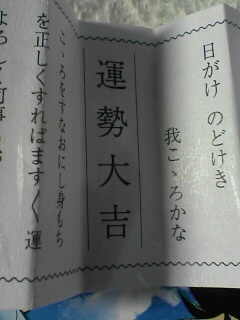 日がけ のどけき
我こゝろかな
運勢大吉
こゝろをすなおにし身もち
を正しくすればます〳〵運
よろしく何事